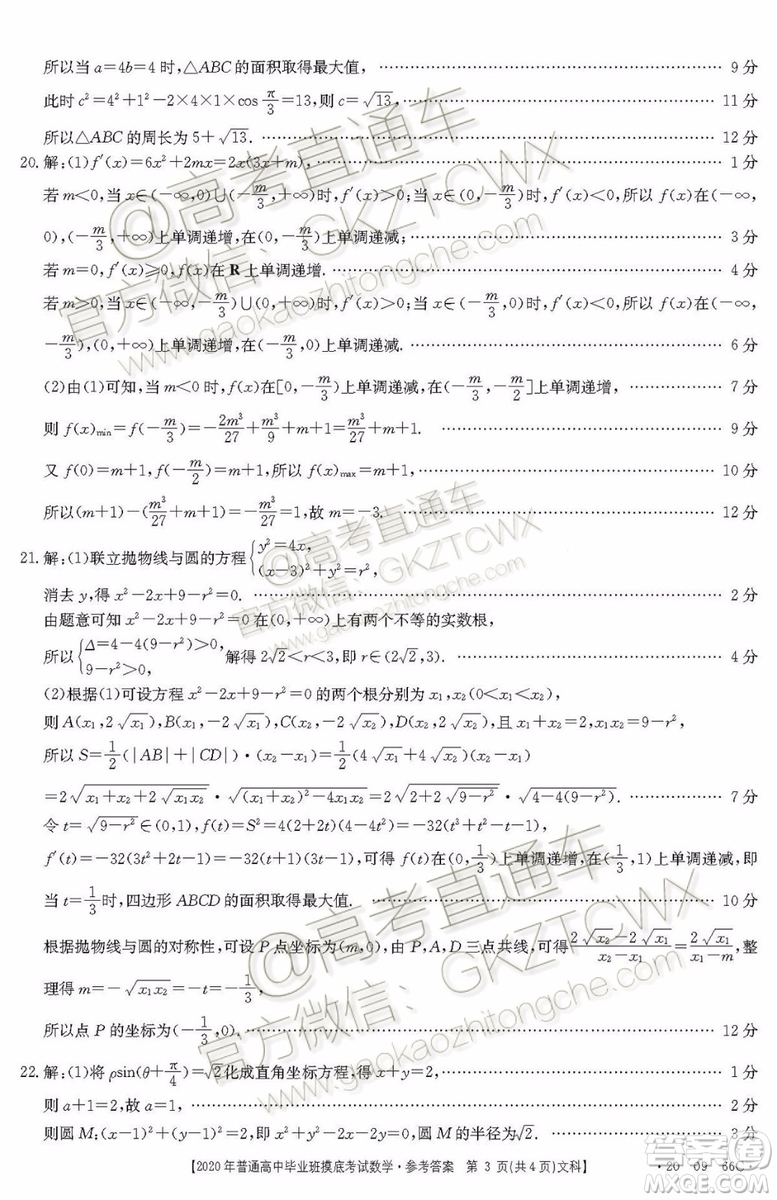 所以当a=4b=4时,△ABC的面积取得最大值, 9分
此时c²=4²+1²-2×4×1×cos π/3=13,则c=√13. 11分
所以△ABC的周长为5+√13. 12分
20.解:(1)f′(x)=6x²+2mx=2x(3x+m), 1分
若m<0,当x∈(-∞,0)∪(-m/3,+∞)时,f′(x)>0;当x∈(0,-m/3)时,f′(x)<0,所以f(x)在(-∞,
0),(-m/3,+∞)上单调递增,在(0,-m/3)上单调递减; 3分
若m=0,f′(x)≥0,f(x)在R上单调递增. 4分
若m>0,当x∈(-∞,-m/3)∪(0,+∞)时,f′(x)>0;当x∈(-m/3,0)时,f′(x)<0,所以f(x)在(-∞,
-m/3),(0,+∞)上单调递增,在(-m/3,0)上单调递减. 6分
(2)由(1)可知,当m<0时,f(x)在[0,-m/3)上单调递减,在(-m/3,-m/2]上单调递增, 7分
则f(x)min=f(-m/3)=-2m³/27+m³/9+m+1=m³/27+m+1. 9分
又f(0)=m+1,f(-m/2)=m+1,所以f(x)max=m+1, 10分
所以(m+1)-(m³/27+m+1)=-m³/27=1,故m=-3. 12分
21.解:(1)联立抛物线与圆的方程{y²=4x, (x-3)²+y²=r²,
消去y,得x²-2x+9-r²=0. 2分
由题意可知x²-2x+9-r²=0在(0,+∞)上有两个不等的实数根,
所以{Δ=4-4(9-r²)>0, 9-r²>0, 解得2√2<r<3,即r∈(2√2,3). 4分
(2)根据(1)可设方程x²-2x+9-r²=0的两个根分别为x₁,x₂(0<x₁<x₂),
则A(x₁,2√x₁),B(x₁,-2√x₁),C(x₂,-2√x₂),D(x₂,2√x₂),且x₁+x₂=2,x₁x₂=9-r²,
所以S=1/2(|AB|+|CD|)·(x₂-x₁)=1/2(4√x₁+4√x₂)(x₂-x₁)
=2√(x₁+x₂+2√(x₁x₂))·√((x₁+x₂)²-4x₁x₂)=2√(2+2√(9-r²))·√(4-4(9-r²)). 7分
令t=√(9-r²)∈(0,1),f(t)=S²=4(2+2t)(4-4t²)=-32(t³+t²-t-1),
f′(t)=-32(3t²+2t-1)=-32(t+1)(3t-1),可得f(t)在(0,1/3)上单调递增,在(1/3,1)上单调递减,即
当t=1/3时,四边形ABCD的面积取得最大值. 10分
根据抛物线与圆的对称性,可设P点坐标为(m,0),由P,A,D三点共线,可得(2√x₂-2√x₁)/(x₂-x₁)=2√x₁/(x₁-m),整
理得m=-√(x₁x₂)=-t=-1/3,
所以点P的坐标为(-1/3,0). 12分
22.解:(1)将ρsin(θ+π/4)=√2化成直角坐标方程,得x+y=2, 1分
则a+1=2,故a=1, 2分
则圆M:(x-1)²+(y-1)²=2,圆M的半径为√2. 3分
【2020年普通高中毕业班摸底考试数学·参考答案 第3页(共4页)文科】 ·20-09-66C·
@高考直通车
官方微信:GKZTCWX
www.gaokaozhitongche.com
@高考直通车
官方微信:GKZTCWX
www.gaokaozhitongche.com
@高考直通车
官方微信:GKZTCWX
www.gaokaozhitongche.com
作业帮
MXQE.COM